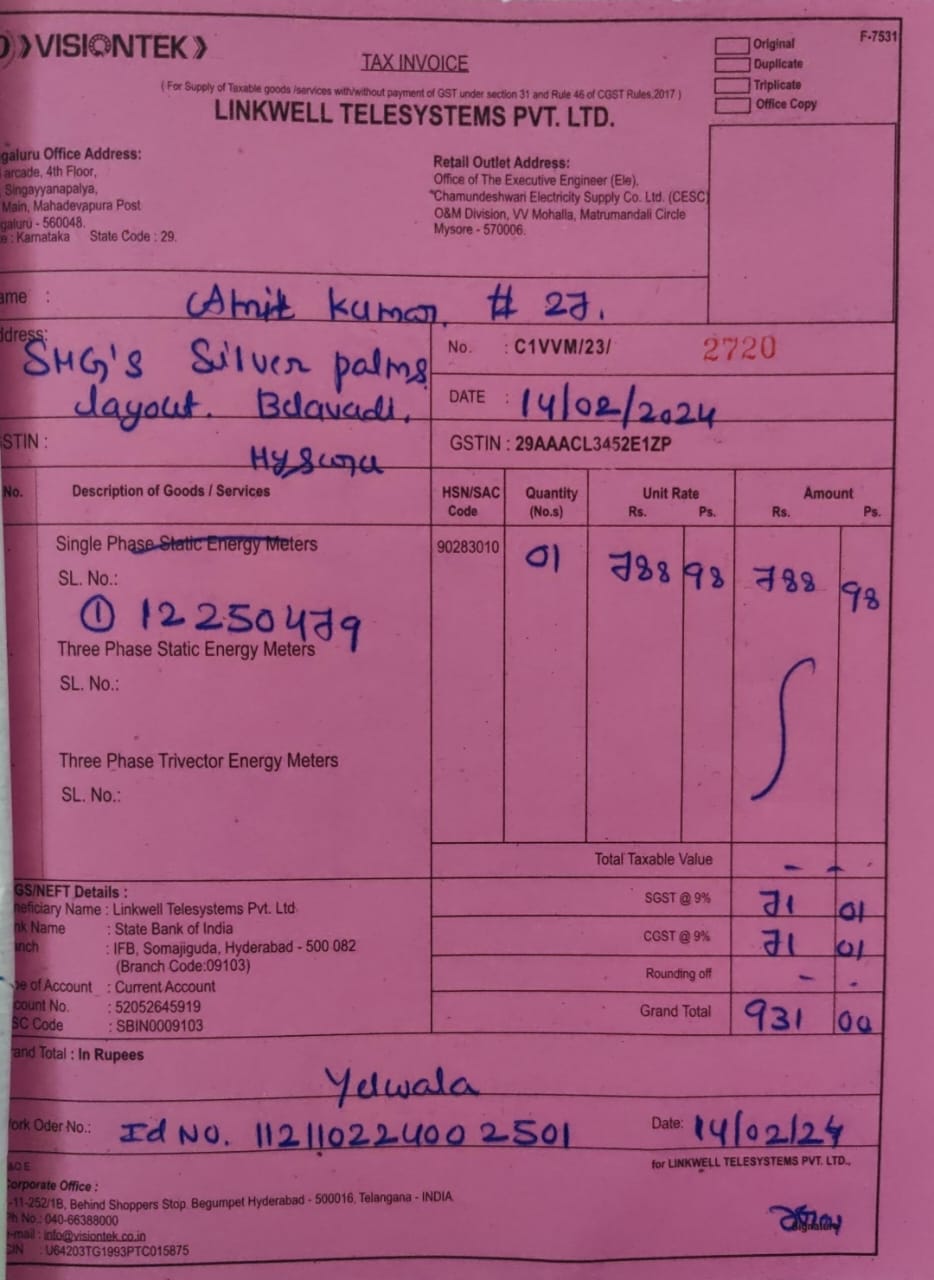 VISIONTEK
TAX INVOICE
Original
Duplicate
Triplicate
Office Copy
F-7531
( For Supply of Taxable goods /services with/without payment of GST under section 31 and Rule 46 of CGST Rules,2017 )
LINKWELL TELESYSTEMS PVT. LTD.
galuru Office Address:
arcade, 4th Floor,
Singayyanapalya,
Main, Mahadevapura Post
galuru - 560048.
e : Karnataka State Code : 29.
Retail Outlet Address:
Office of The Executive Engineer (Ele),
Chamundeshwari Electricity Supply Co. Ltd. (CESC)
O&M Division, VV Mohalla, Matrumandali Circle
Mysore - 570006.
ame : Amit Kumar, # 27.
ddress: SMG's Silver palms
layout. Belavadi,
Mysuru
No. : C1VVM/23/ 2720
DATE : 14/02/2024
STIN :
GSTIN : 29AAACL3452E1ZP
No. Description of Goods / Services HSN/SAC Code Quantity (No.s) Unit Rate Rs. Ps. Amount Rs. Ps.
Single Phase Static Energy Meters 90283010 01 788 98 788 98
SL. No.:
① 12250479
Three Phase Static Energy Meters
SL. No.:
Three Phase Trivector Energy Meters
SL. No.:
Total Taxable Value - -
SGST @ 9% 71 01
CGST @ 9% 71 01
Rounding off - .
Grand Total 931 00
GS/NEFT Details :
neficiary Name : Linkwell Telesystems Pvt. Ltd
nk Name : State Bank of India
nch : IFB, Somajiguda, Hyderabad - 500 082
(Branch Code:09103)
pe of Account : Current Account
count No. : 52052645919
SC Code : SBIN0009103
and Total : In Rupees
Yelwala
ork Oder No.: Id NO. 112110224002501 Date: 14/02/24
for LINKWELL TELESYSTEMS PVT. LTD.,
orporate Office :
-11-252/1B, Behind Shoppers Stop. Begumpet Hyderabad - 500016, Telangana - INDIA
Ph No.: 040-66388000
-mail : info@visiontek.co.in
CIN : U64203TG1993PTC015875
Signature